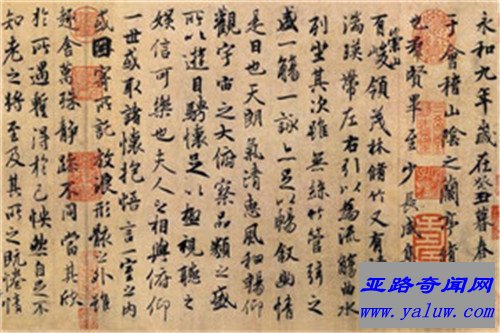 永和九年歲在癸丑暮春
于會稽山陰之蘭亭脩
也羣賢畢至少長咸集
崇山
有峻領茂林脩竹又有
湍暎帶左右引以為流觴曲水
列坐其次雖無絲竹管弦之
盛一觴一詠亦足以暢敘幽情
是日也天朗氣清惠風和暢仰
觀宇宙之大俯察品類之盛
所以遊目騁懷足以極視聽之
娛信可樂也夫人之相與俯仰
一世或取諸懷抱悟言一室之內
或因寄所託放浪形骸之外雖
趣舍萬殊靜躁不同當其欣
於所遇暫得於己怏然自足不
知老之將至及其所之既惓情
亚路奇闻网
www.yaluw.com